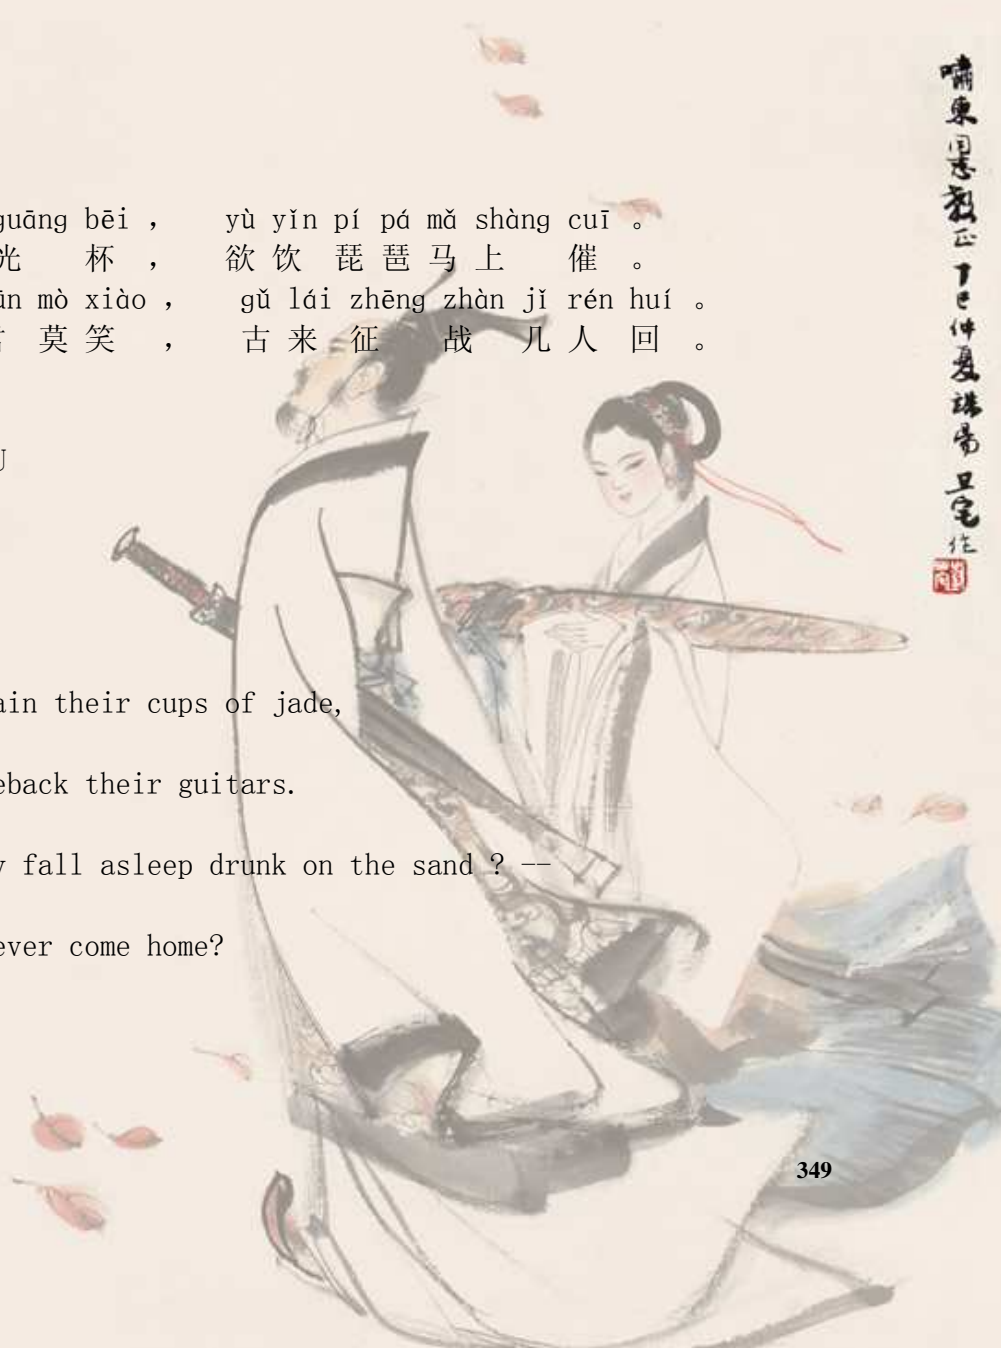 guāng bēi ， yù yǐn pí pá mǎ shàng cuī 。
光 杯 ， 欲 饮 琵 琶 马 上 催 。
ūn mò xiào ， gǔ lái zhēng zhàn jǐ rén huí 。
莫 笑 ， 古 来 征 战 几 人 回 。
ain their cups of jade,
eback their guitars.
fall asleep drunk on the sand ? --
ever come home?
349
啸东同志教正丁巳仲夏